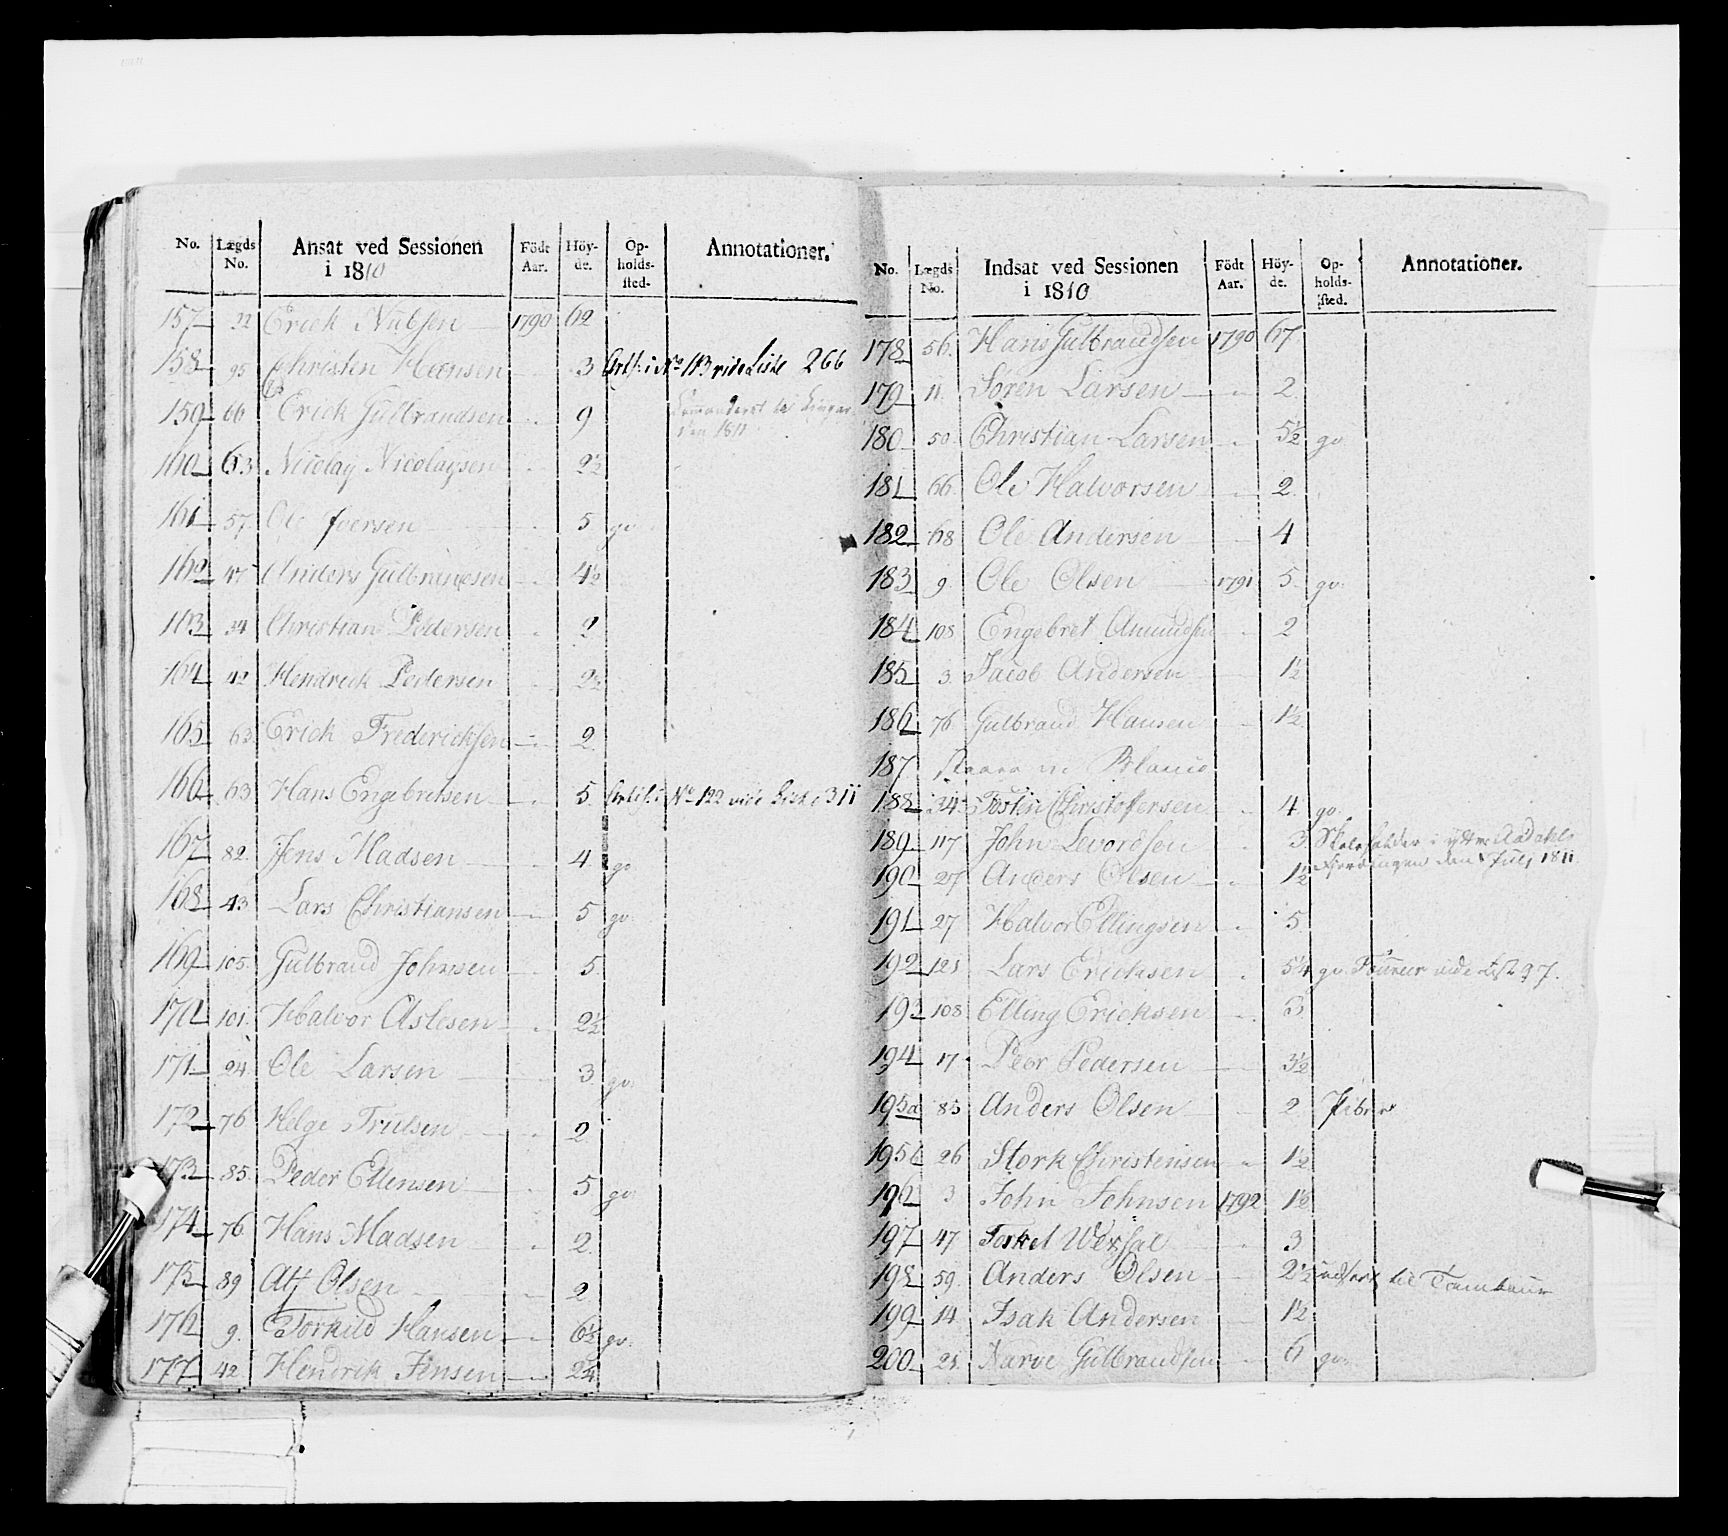 No. Lægds No. Ansat ved Sessionen i 1810 Födt Aar. Höyde. Opholdssted. Annotationer.
157 32 Erick Nubsen 1790 62
158 95 Christen Hansen 3 No 113 vide Liste 266
159 66 Erick Gulbrandsen 9 den 1811
160 63 Nicolay Nicolaysen 2½
161 57 Ole Iversen 5 go
162 47 Anders Gulbrandsen 4½
163 34 Christian Pedersen 2
164 42 Hendrick Pedersen 2½
165 63 Erick Fredericksen 2
166 63 Hans Engebretsen 5 No 122 vide Liste 311
167 82 Jens Madsen 4 go
168 43 Lars Christiansen 5 go
169 105 Gulbrand Johnsen 5
170 101 Halvor Aslesen 2½
171 24 Ole Larsen 3 go
172 76 Helge Trulsen 2
173 85 Peder Ellensen 5 go
174 76 Hans Madsen 2
175 89 Alf Olsen 2
176 9 Torkild Hansen 6½ go
177 42 Hendrik Jensen 2¼
No. Lægds No. Indsat ved Sessionen i 1810 Födt Aar. Höyde. Opholdssted. Annotationer.
178 56 Hans Gulbrandsen 1790 67
179 11 Soren Larsen 2
180 50 Christian Larsen 5½ go
181 66 Ole Halvorsen 2
182 68 Ole Andersen 4
183 9 Ole Olsen 1791 5 go
184 108 Engebret Amundsen 2
185 3 Jacob Andersen 1½
186 76 Gulbrand Hansen 1½
187
188 34 Tosten Christoffersen 4 go
189 117 John Levordsen 3 Skoleholder i ytter Aadals
Fierdingen den July 1811
190 27 Anders Olsen 1½
191 27 Halvor Ellingsen 5
192 121 Lars Ericksen 5¼ go Fourer vide 297.
193 108 Elling Ericksen 3
194 17 Peer Pedersen 3½
195a 85 Anders Olsen 2 Piber
195b 26 Stork Christensen 1½
196 3 John Johnsen 1792 1½
197 47 Torkel 3
198 59 Anders Olsen 2½ til Tambour
199 14 Isak Andersen 1½
200 21 Narve Gulbrandsen 6 go